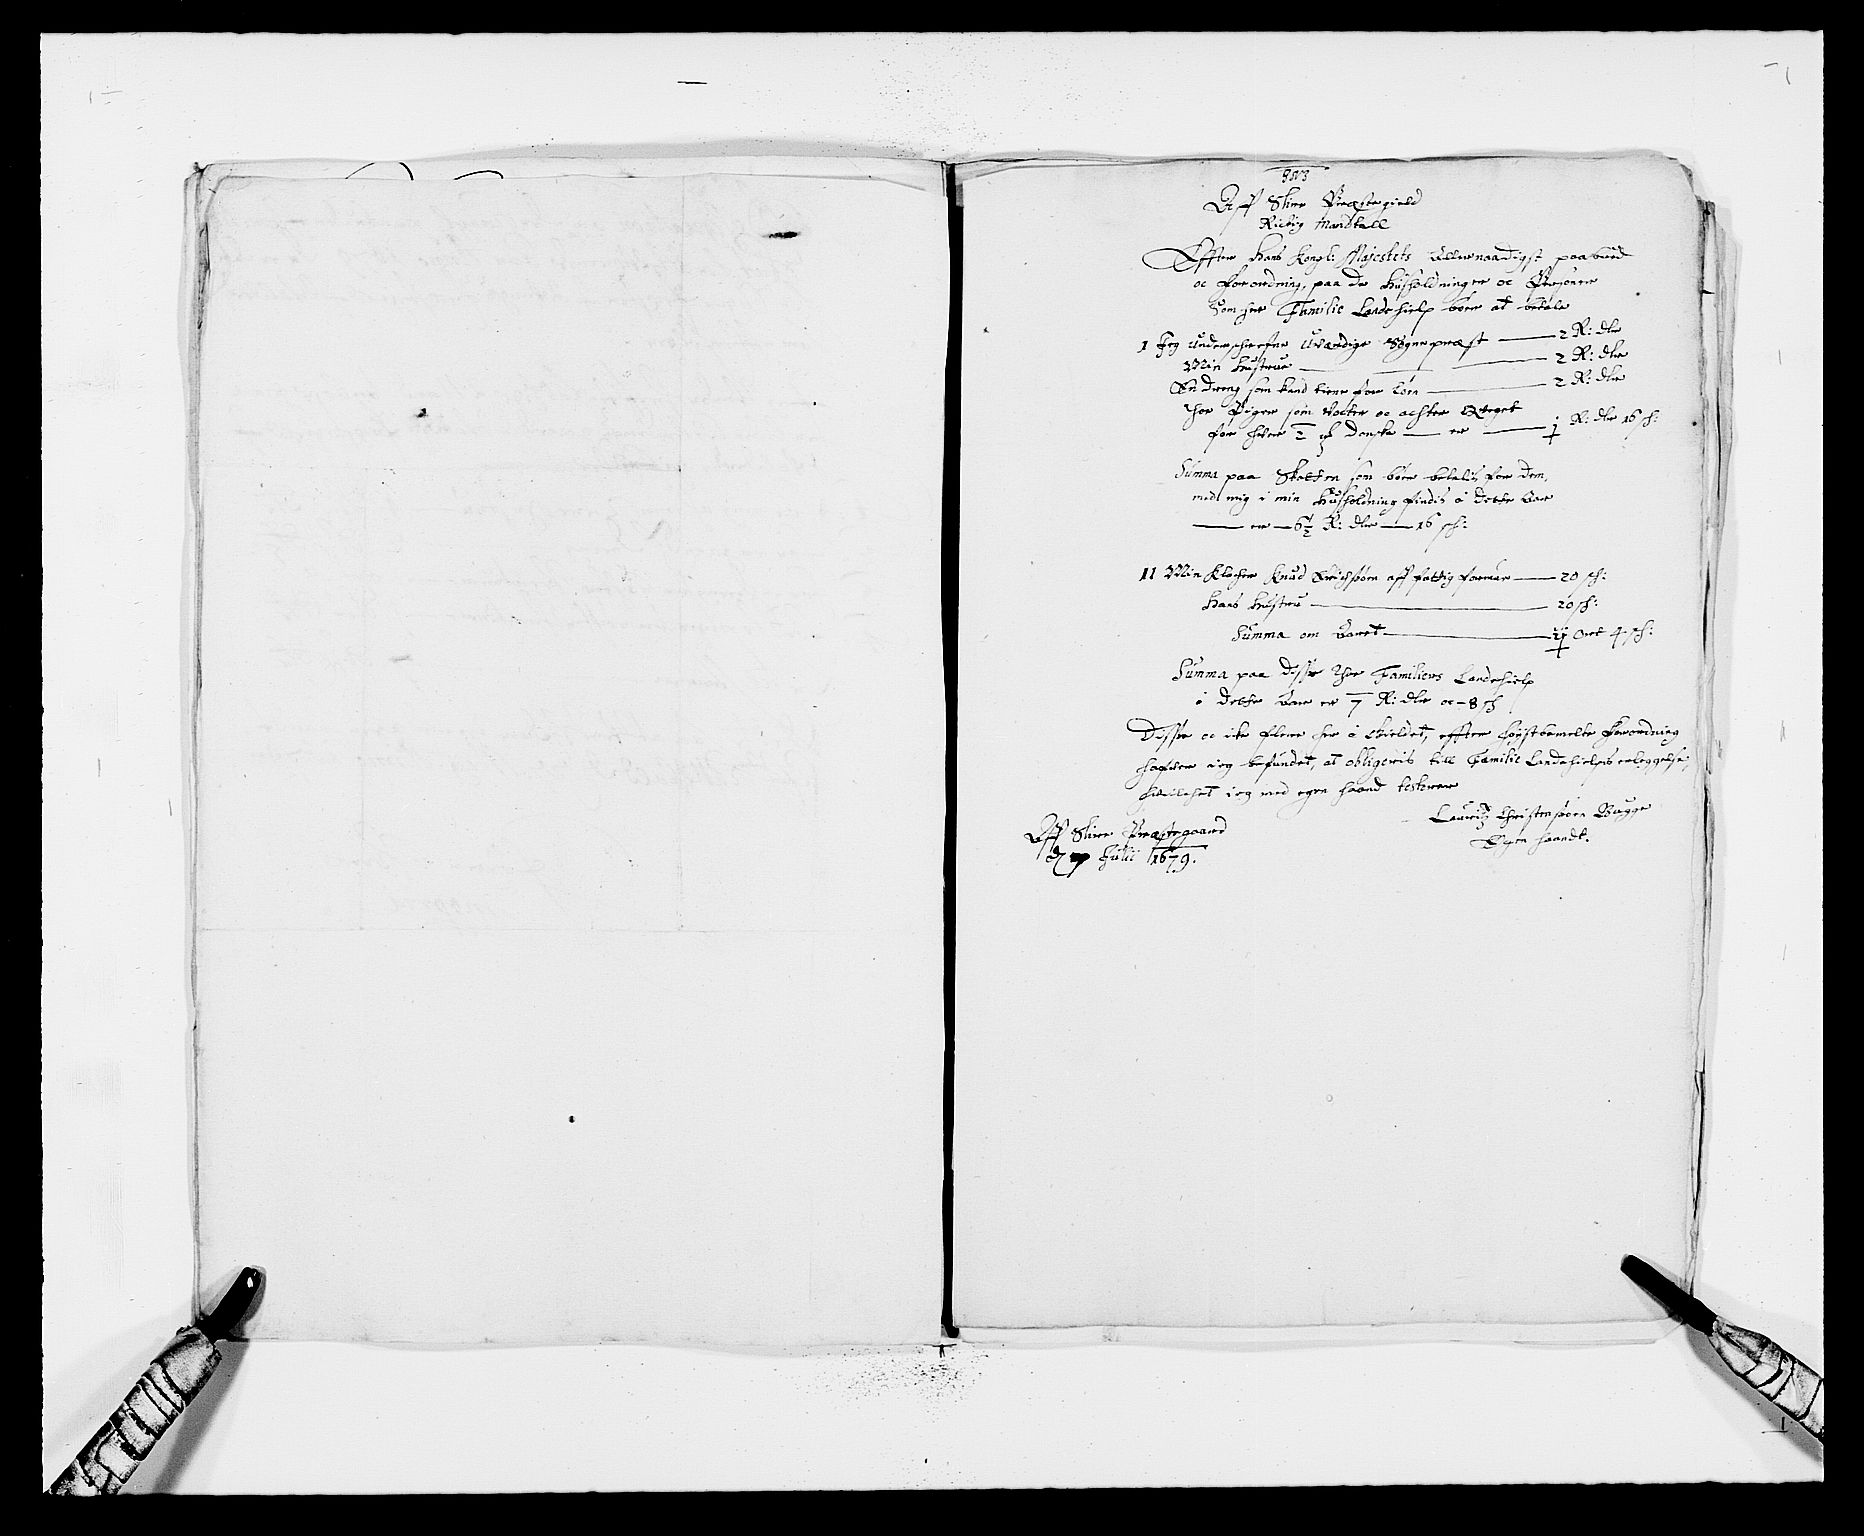 Aff Slire Præstegield
Rictig Mandtall
Effter Hans Kongl: Majestets Allernaadigst paabud
oc forordning, paa de Husholdninger oc Personer
som her Familie Landehielp bøer at betale
1 Jeg underschrefne uverdige Sogneprest — 2 R: dlr
Min Hustrue — 2 R: dlr
En dreng som kand tiene for løen — 2 R: dlr
Thoe Piger som vocter oc achter Qveget
for hver ½ Danske — er — R: dlr 16 sh:
Summa paa Skatten som bøer betalis for dem,
med mig i min Husholdning findis i dette Aar
— er — 6½ R: dlr — 16 sh:
11 Min Klocher Knud Erichsøen aff fattig formue — 20 sh:
Hans Hustru — 20 sh:
Summa om Aaret — Ort 4 sh:
Summa paa disse thoe Familiers Landehielp
i dette Aar er 7 R: dlr oc - 8 sh
Disse oc ike flere her i Gieldet, effter høystbemelte Forordning
hafver ieg befundet, at obligeris till Familie Landehielpis erleggelse,
hvilchet ieg med egen haand testerer
Lauritz Christensøen Bugge
Egen haandt.
Aff Slire Præstegaard
d. Julii 1679.